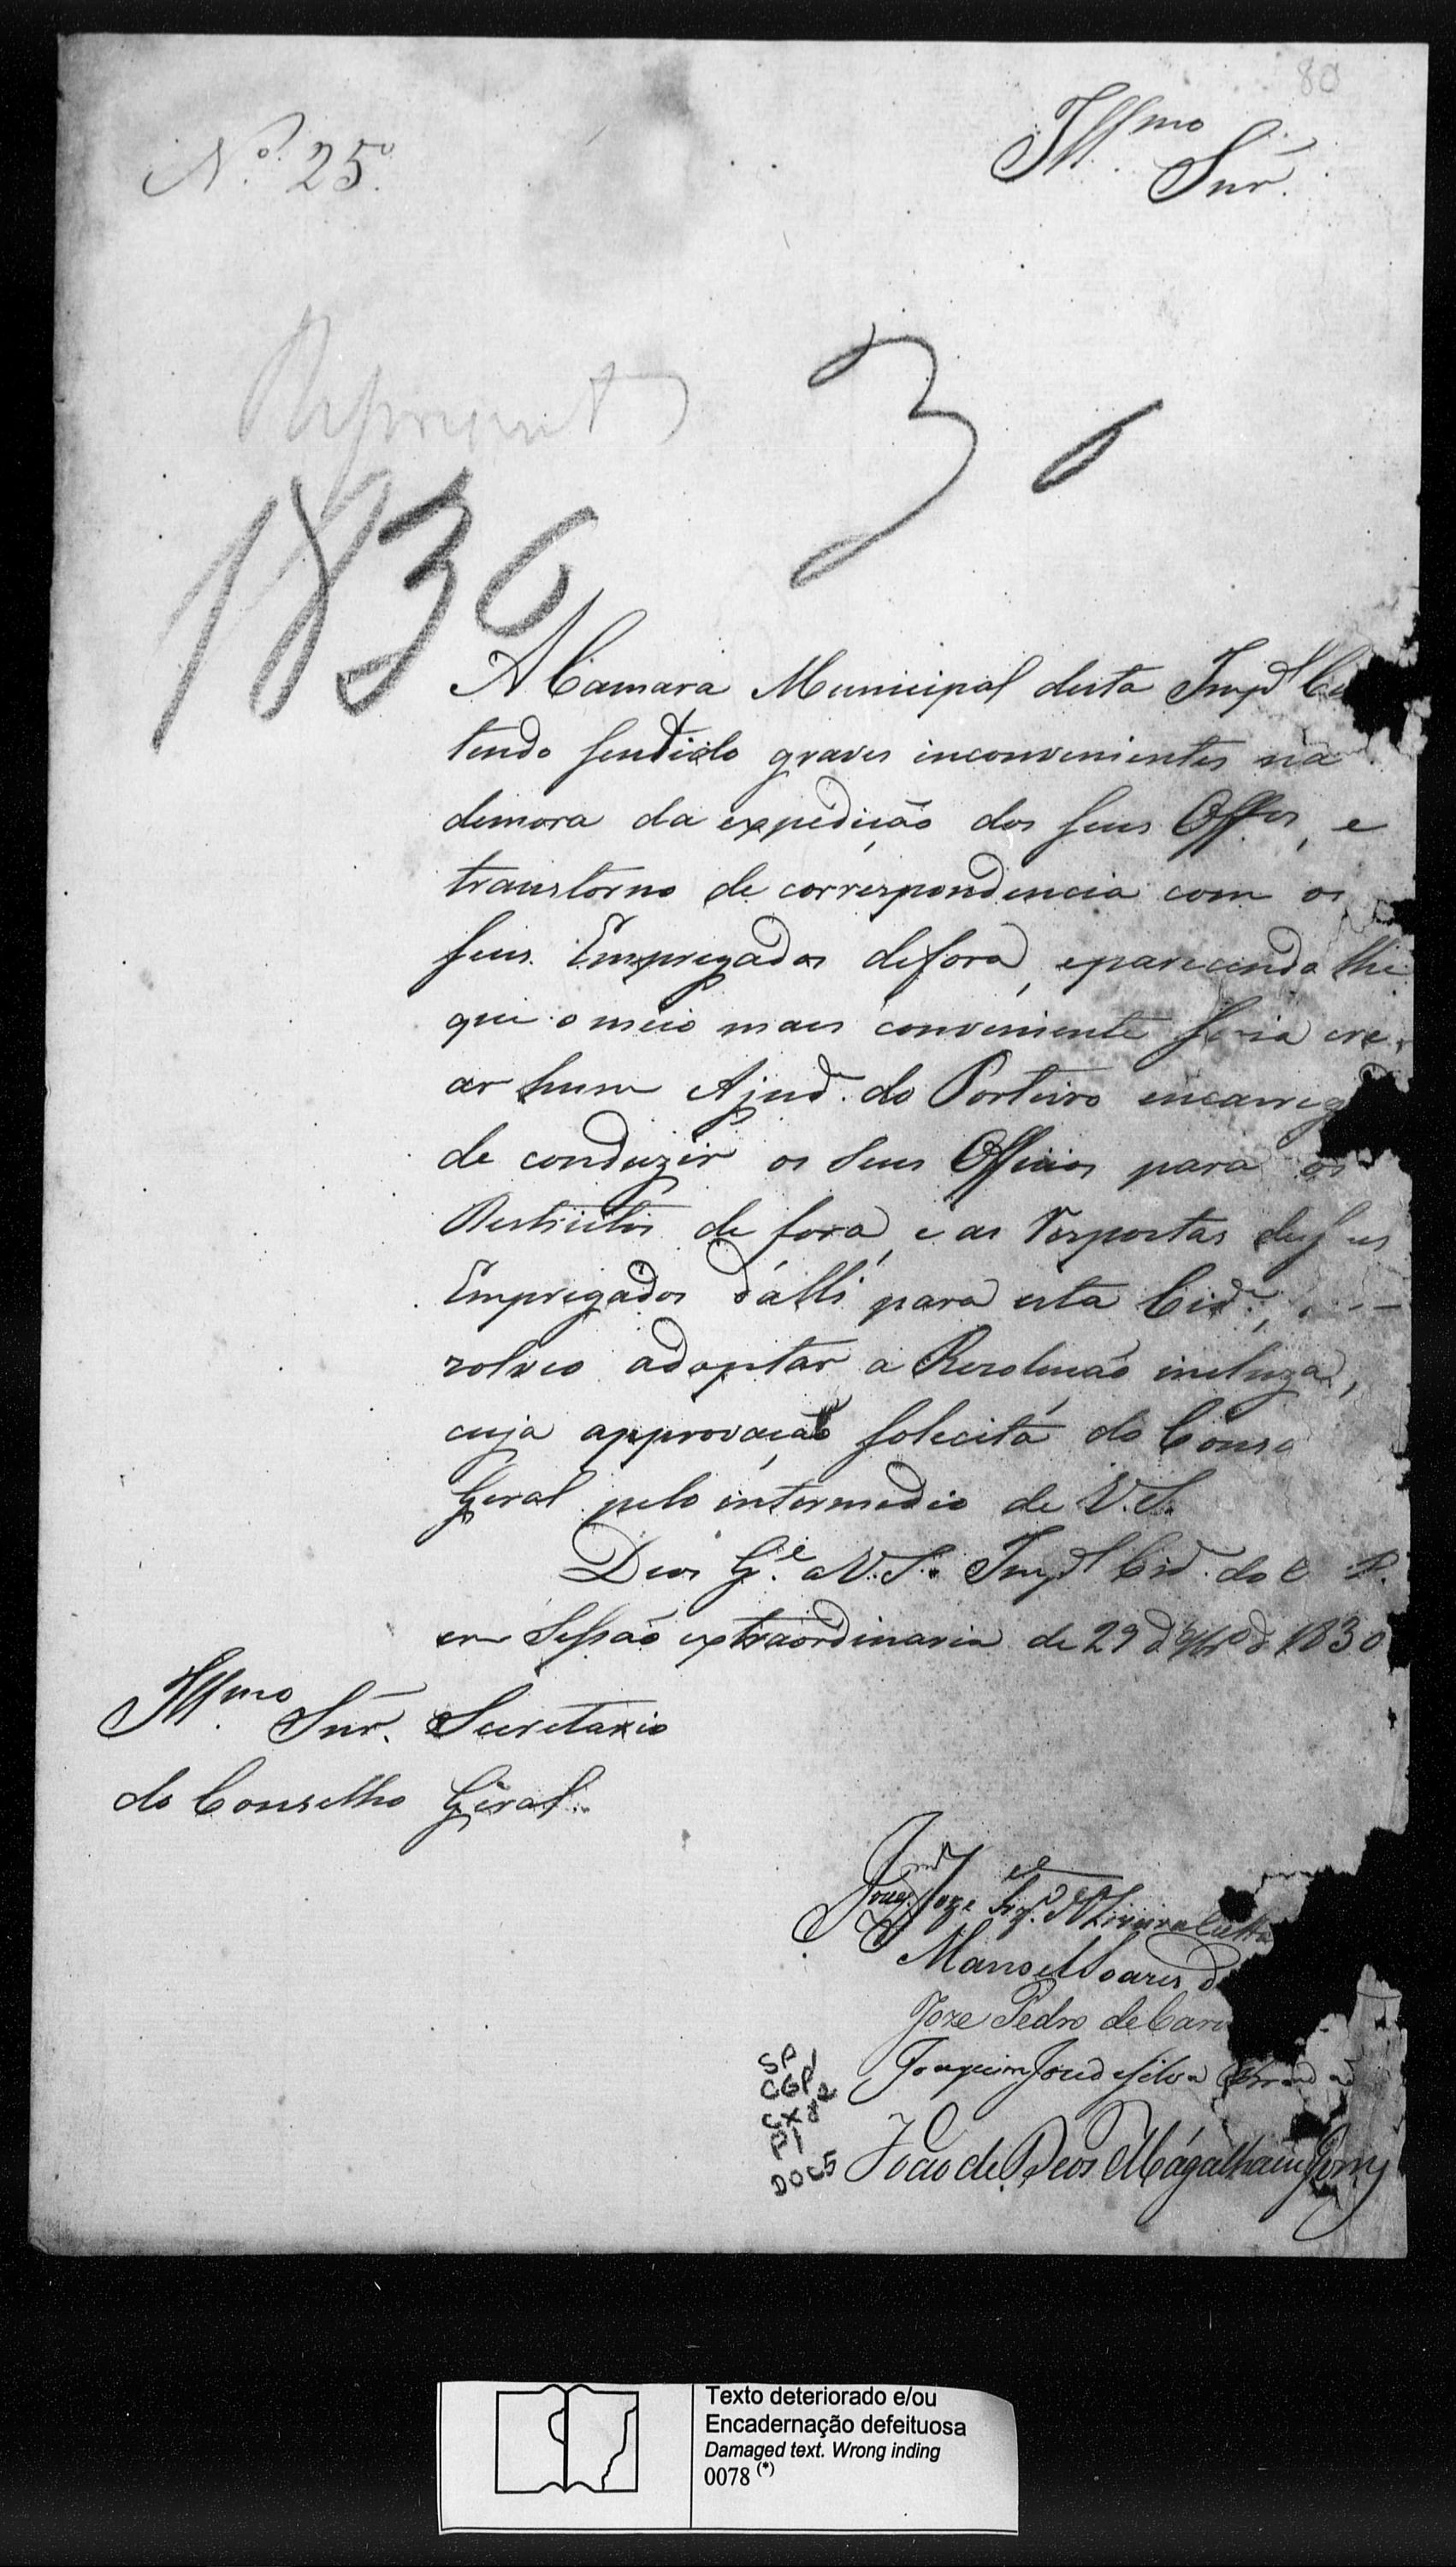 80
Nº 25.
Illmo
Snr.
Represent
3
1830
A Camara Municipal desta Impl Ci
tendo sentido graves inconvenientes na
demora da expedição dos seus Offos, e
transtorno de correspondencia com os
seus Empregados defora, eparecendo lhe
que o meio mais conveniente seria cre
ar hum Ajude. do Porteiro encarreg
de conduzir os seus Officios para os
Destrictos de fora, e as respostas de seus
Empregados d'alli para esta Cide.,
zolveo adoptar a Rezolução incluza,
cuja approvação solecita do Cons
Geral pelo intermedio de V.S.
Deos Ge. a V.S. Impl Cide. do O P.
em Sessão extraordinaria de 29 d 9bro d 1830
Illmo Snr. Secretario
do Conselho Geral.
Joze d'Oliveira
Manoel Soares d
Joze Pedro de Car
Joaquim Joze da Silva Brandão
João de Deos Magalhaens Gomes
SP 1
CGP2
CX2
P1
DOC5
Texto deteriorado e/ou
Encadernação defeituosa
Damaged text. Wrong inding
0078 (*)